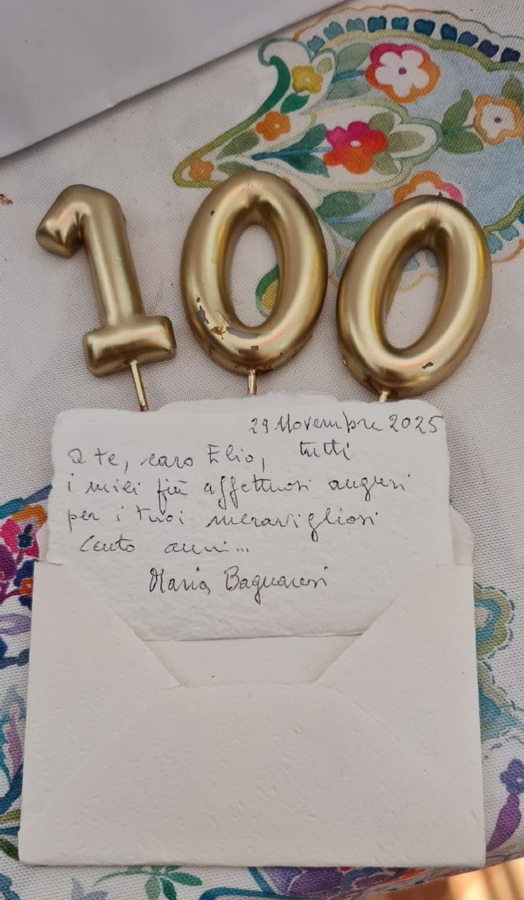 100
29 Novembre 2025
A te, caro Elio, tutti
i miei più affettuosi auguri
per i tuoi meravigliosi
Cento anni...
Maria Bagnaresi